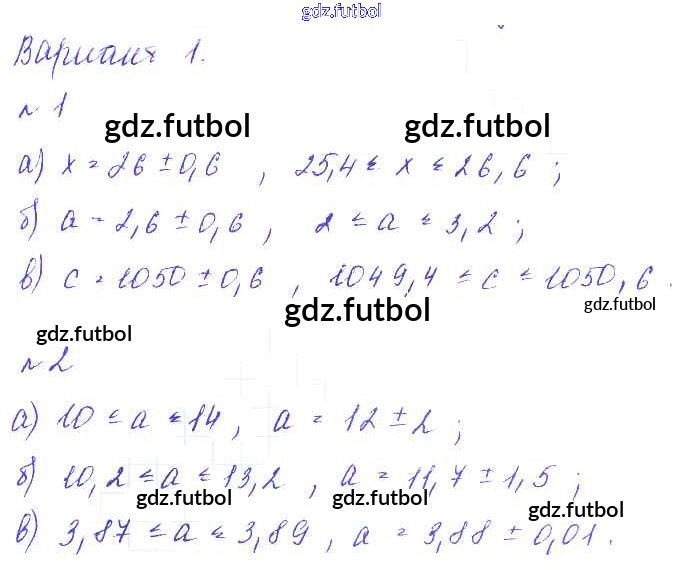 gdz.futbol
Вариант 1.
№ 1
gdz.futbol gdz.futbol
а) x = 26 ± 0,6 , 25,4 ≤ x ≤ 26,6 ;
б) a = 2,6 ± 0,6 , 2 ≤ a ≤ 3,2 ;
в) c = 1050 ± 0,6 , 1049,4 ≤ c ≤ 1050,6 .
gdz.futbol gdz.futbol
gdz.futbol
№ 2
а) 10 ≤ a ≤ 14 , a = 12 ± 2 ;
б) 10,2 ≤ a ≤ 13,2 , a = 11,7 ± 1,5 ;
gdz.futbol gdz.futbol gdz.futbol
в) 3,87 ≤ a ≤ 3,89 , a = 3,88 ± 0,01 .